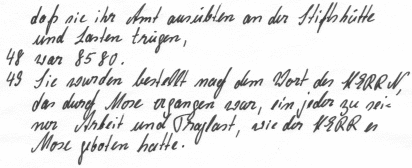 daß sie ihr Amt ausübten an der Stiftshütte
und Lasten trügen,
48 war 8580.
49 Sie wurden bestellt nach dem Wort des HERRN,
das durch Mose ergangen war, ein jeder zu sei-
ner Arbeit und Traglast, wie der HERR es
Mose geboten hatte.